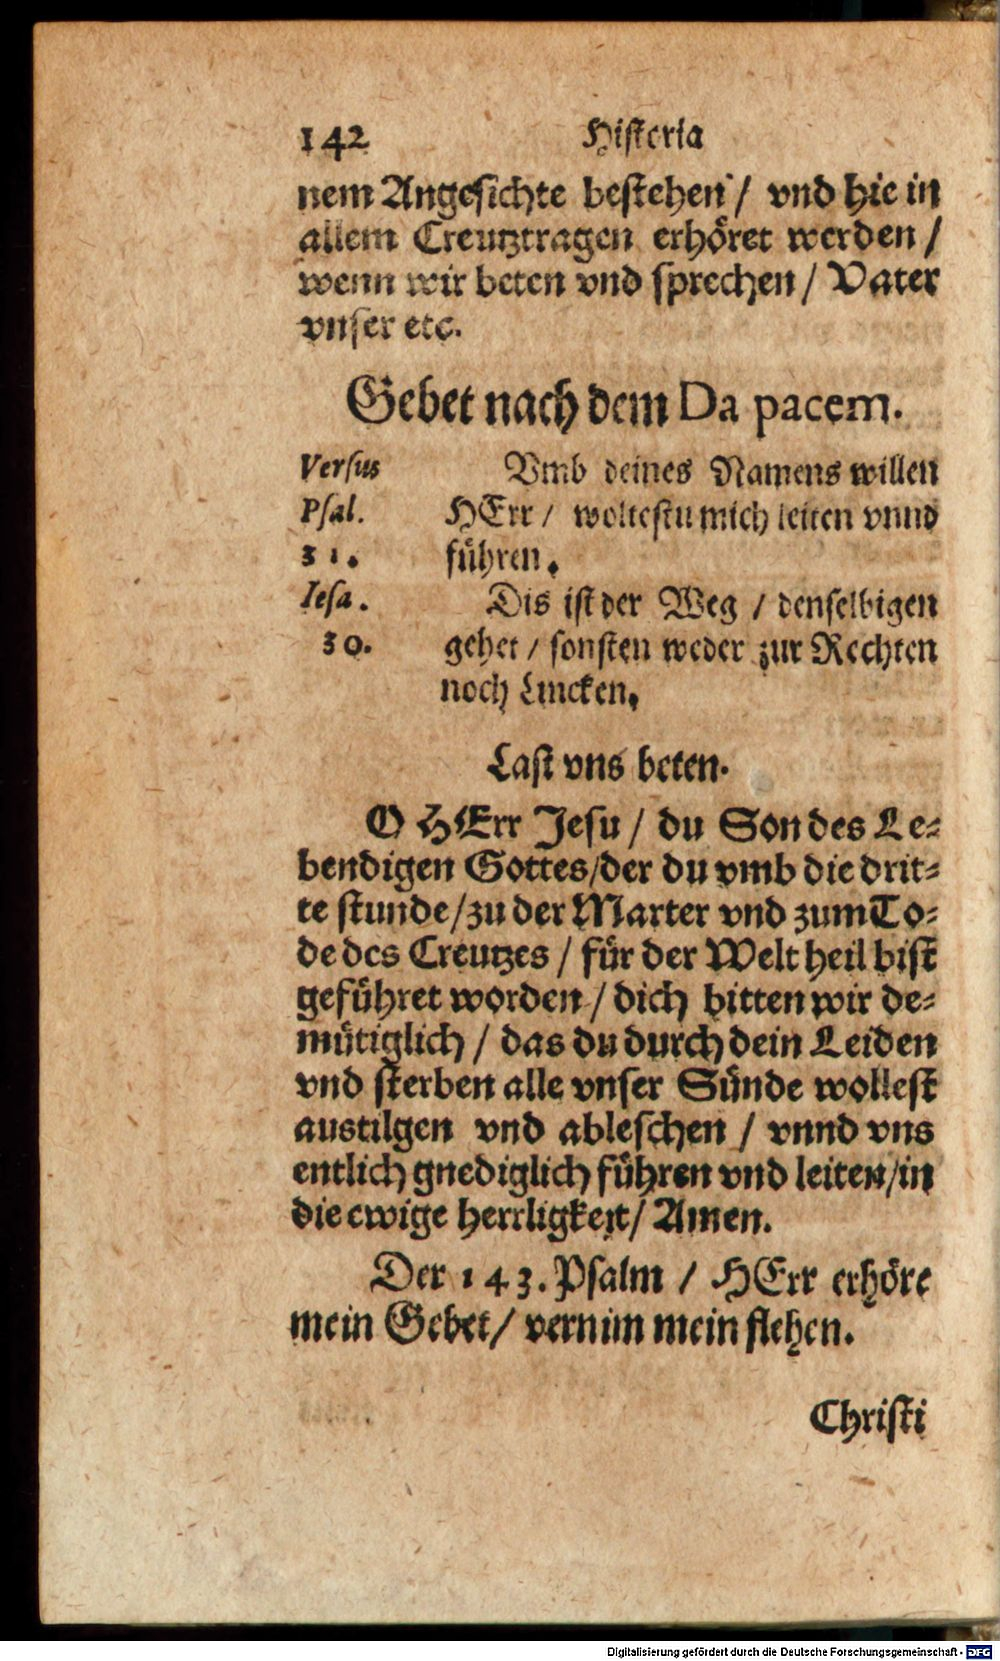 142 Historia
nem Angesichte bestehen / vnd hie in
allem Creutztragen erhöret werden /
wenn wir beten vnd sprechen / Vater
vnser etc.
Gebet nach dem Da pacem.
Versus Vmb deines Namens willen
Psal. HErr / woltestu mich leiten vnnd
31. führen.
Iesa. Dis ist der Weg / denselbigen
30. gehet / sonsten weder zur Rechten
noch Lincken.
Last vns beten.
O HErr Jesu / du Son des Le-
bendigen Gottes/der du vmb die drit-
te stunde/zu der Marter vnd zum To-
de des Creutzes / für der Welt heil bist
geführet worden / dich bitten wir de-
mütiglich / das du durch dein Leiden
vnd sterben alle vnser Sünde wollest
austilgen vnd ableschen / vnnd vns
entlich gnediglich führen vnd leiten/in
die ewige herrligkeit/ Amen.
Der 143. Psalm / HErr erhöre
mein Gebet/ vernim mein flehen.
Christi
Digitalisierung gefördert durch die Deutsche Forschungsgemeinschaft - DFG